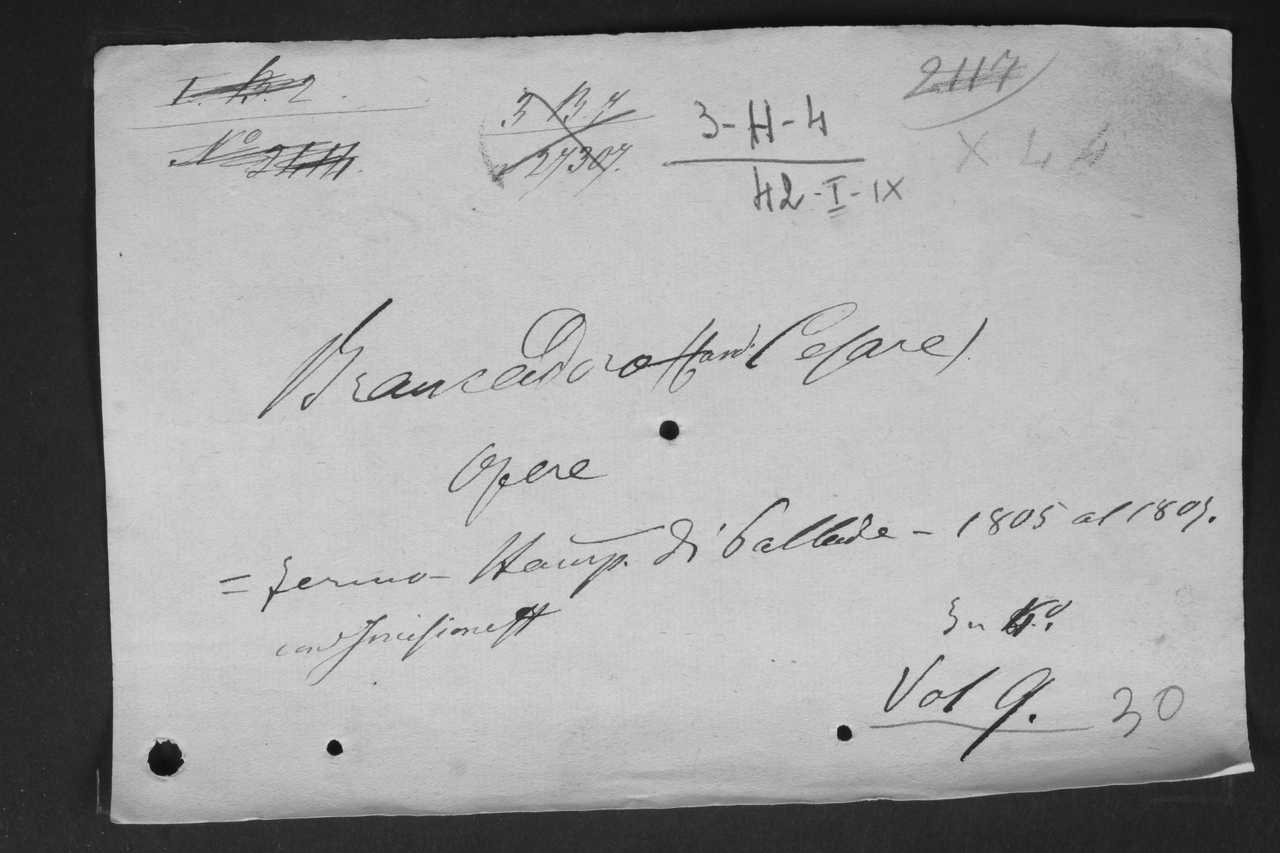 I. B. 2.
Nº 2117.
3 B. 7
27307.
3-H-4
42-I-IX
2117
X L 4
Brancadoro (Card. Cesare)
Opere
= Fermo - Stamp. di Pallade - 1805 al 1809.
con Incisione
In 4.º
Vol 9. 30